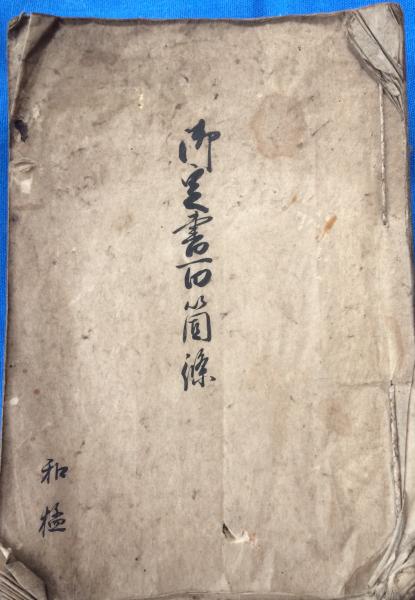 御定書百箇條
和猛